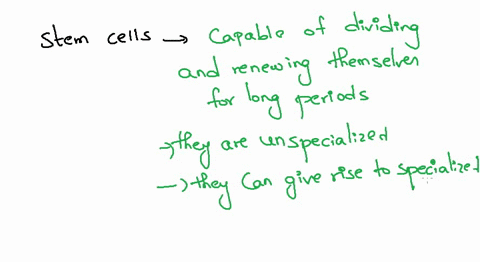 Stem cells → Capable of dividing
and renewing themselves
for long periods
→ they are unspecialized
→ they can give rise to specialized